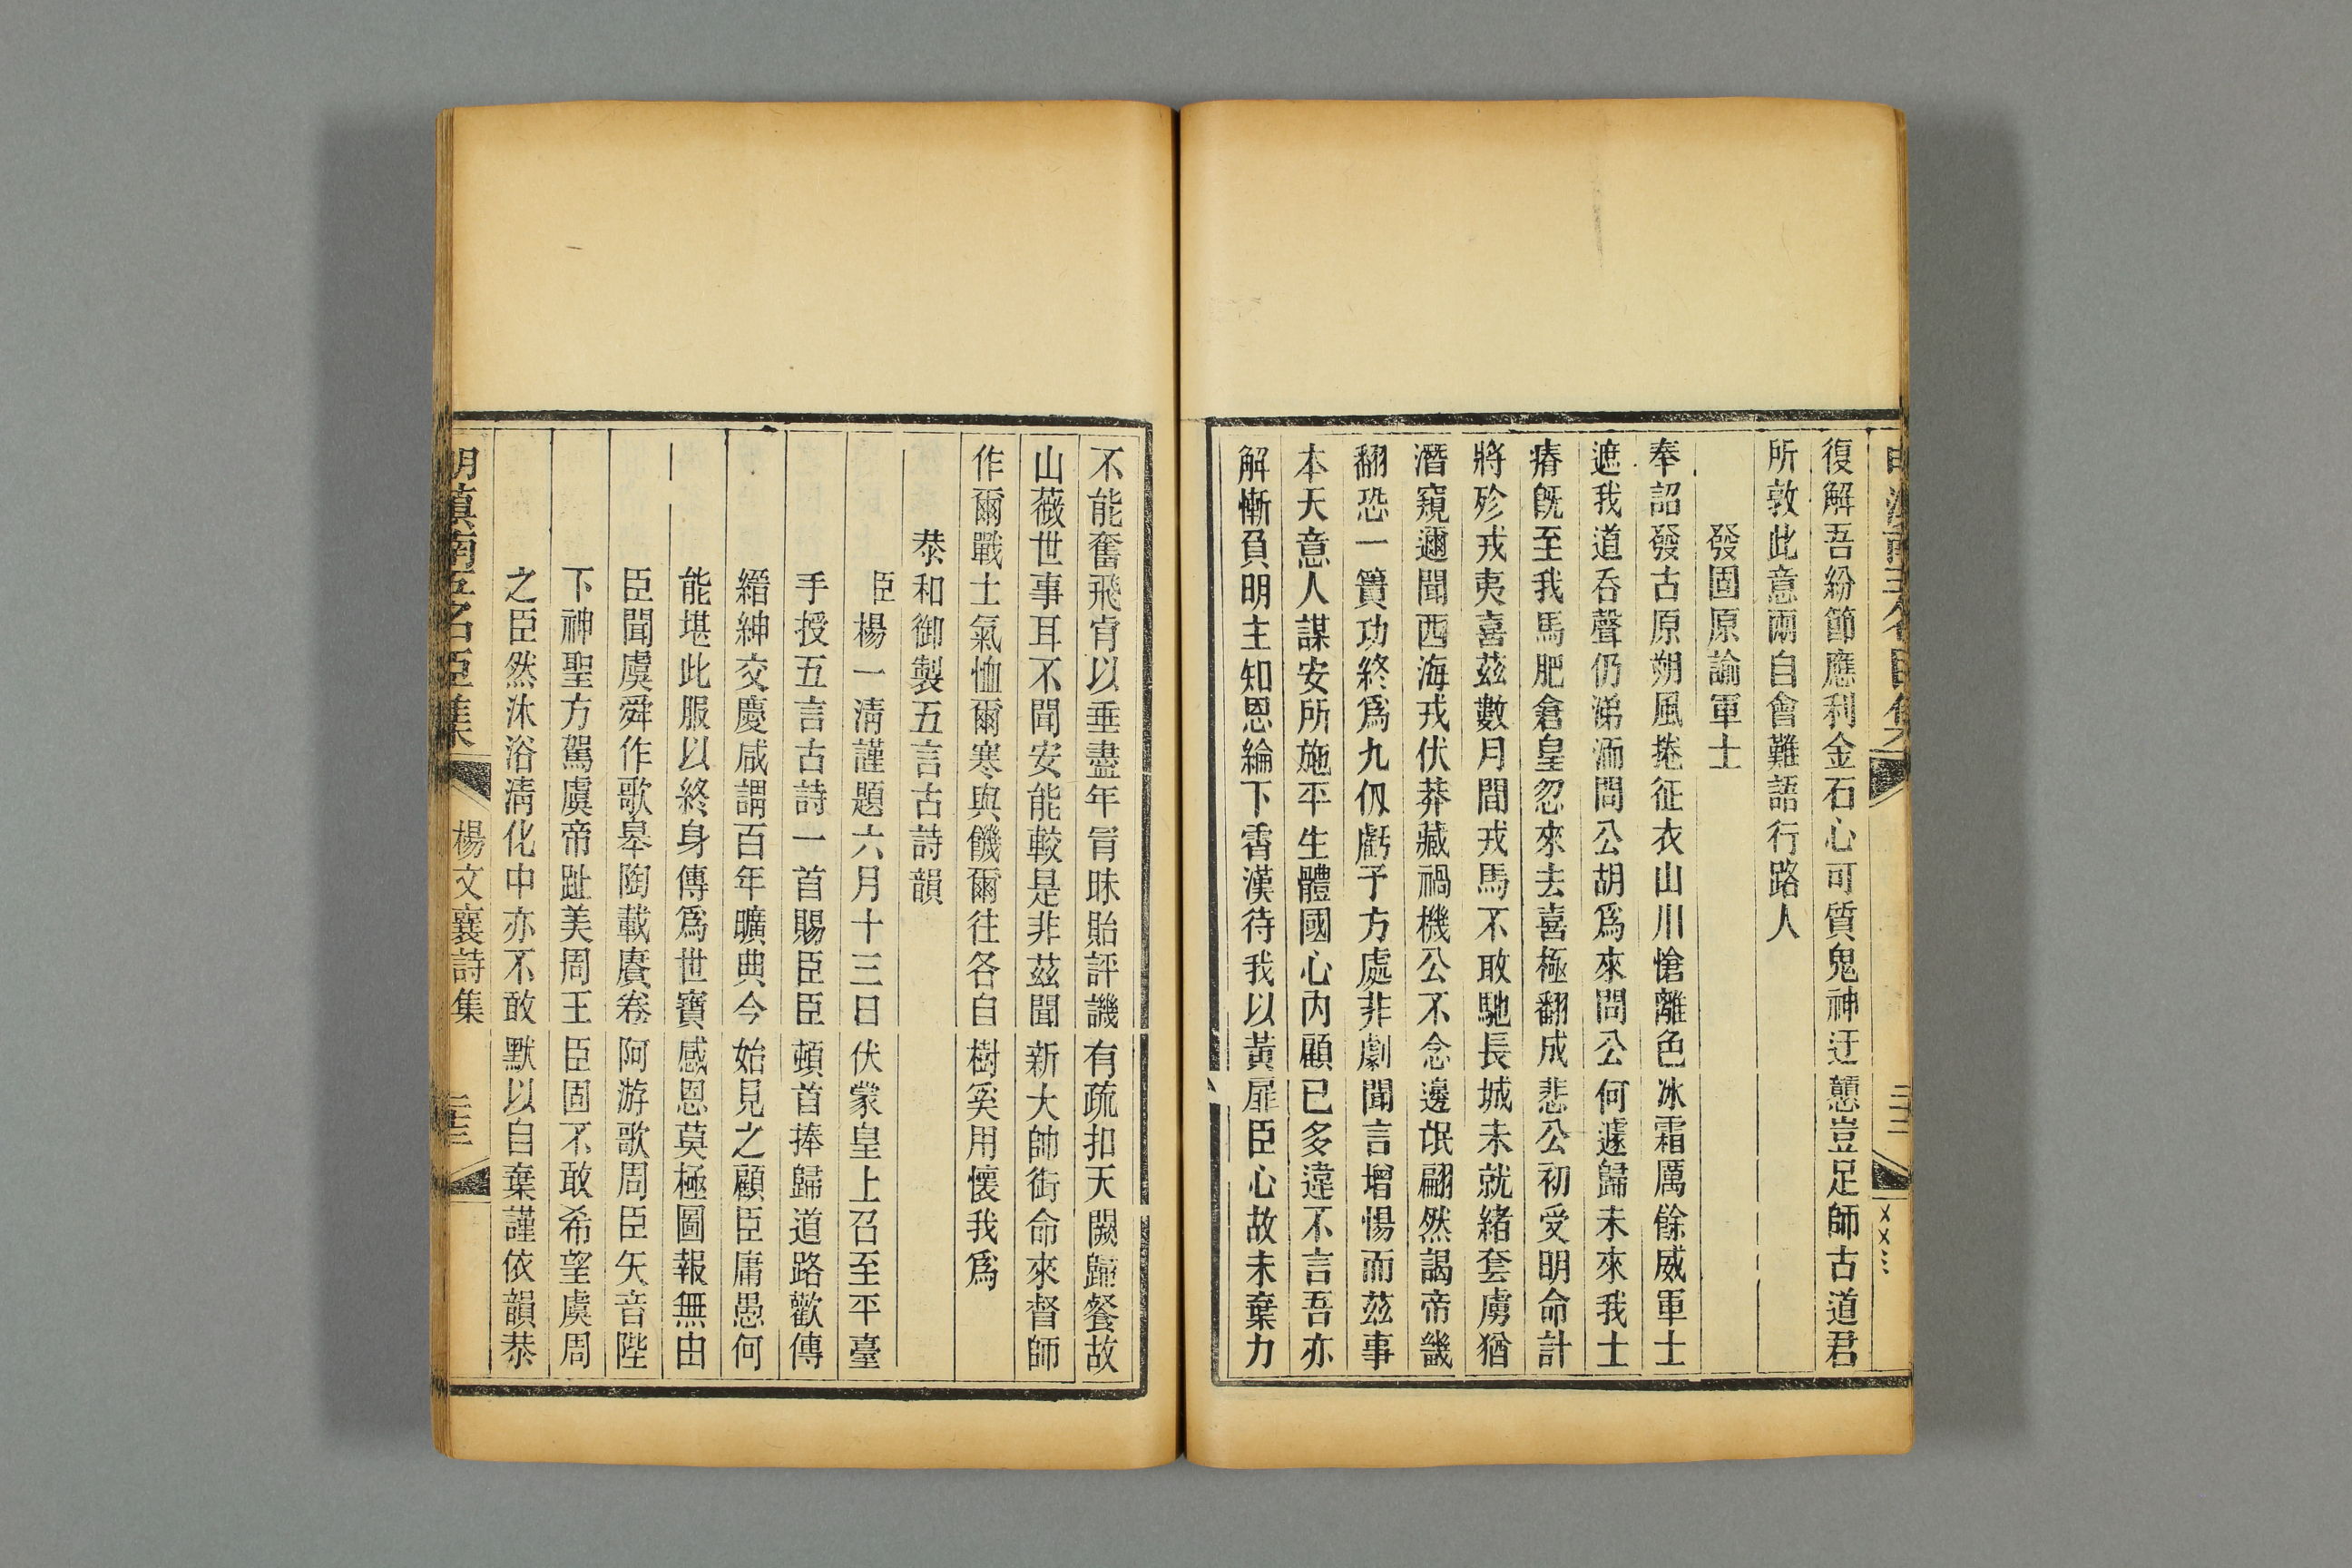 復解吾紛節應利金石心可質鬼神迂戇豈足師古道君
所敦此意兩自會難語行路人
發固原諭軍士
奉詔發古原朔風捲征衣山川愴離色冰霜厲餘威軍士
遮我道吞聲仍涕洏問公胡爲來問公何遽歸未來我士
瘠旣至我馬肥倉皇忽來去喜極翻成悲公初受明命計
將殄戎夷喜茲數月間戎馬不敢馳長城未就緒套虜猶
潛窺邇聞西海戎伏莽藏禍機公不念邊氓翩然謁帝畿
翻恐一簣功終爲九仭虧予方處非劇聞言增惕而茲事
本天意人謀安所施平生體國心內顧已多違不言吾亦
解慚負明主知恩綸下霄漢待我以黃扉臣心故未棄力
不能奮飛肯以垂盡年冐昧貽評譏有疏扣天闕歸餐故
山薇世事耳不聞安能較是非茲聞新大帥銜命來督師
作爾戰士氣恤爾寒與饑爾往各自樹奚用懷我爲
恭和御製五言古詩韻
臣楊一淸謹題六月十三日伏蒙皇上召至平臺
手授五言古詩一首賜臣臣頓首捧歸道路歡傳
縉紳交慶咸謂百年曠典今始見之顧臣庸愚何
能堪此服以終身傳爲世寶感恩莫極圖報無由
臣聞虞舜作歌臯陶載賡卷阿游歌周臣矢音陛
下神聖方駕虞帝趾美周王臣固不敢希望虞周
之臣然沐浴淸化中亦不敢默以自棄謹依韻恭
明滇南五名臣集
楊文襄詩集
三十三